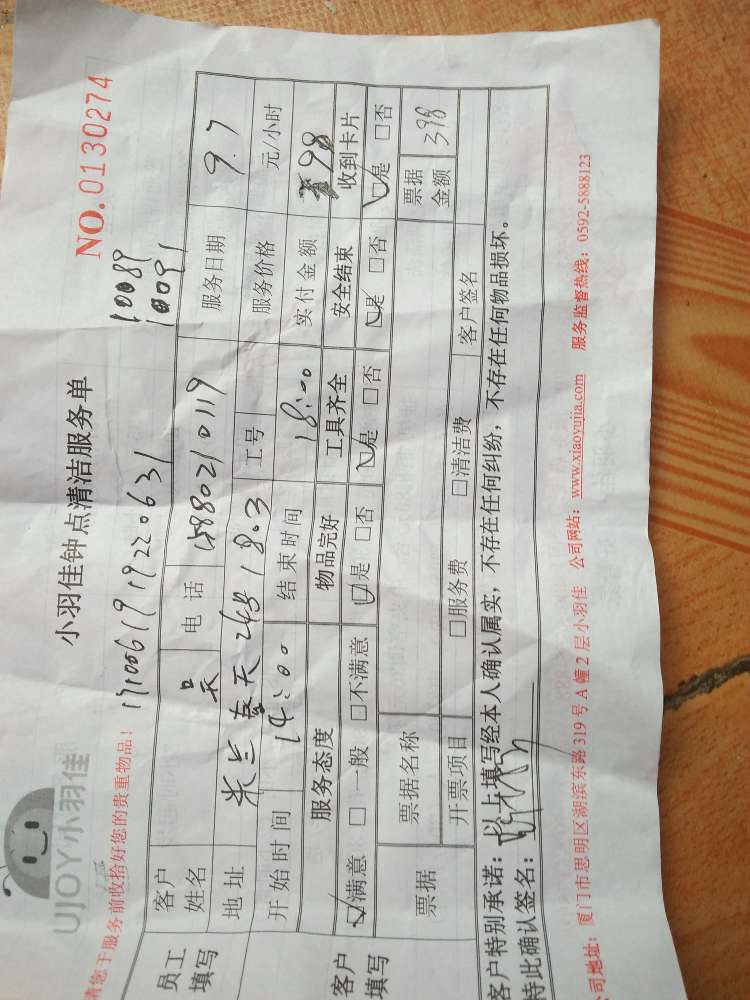 UJOY小羽佳
小羽佳钟点清洁服务单
NO.0130274
请您于服务前收拾好您的贵重物品!
1710061919220631
10089
10091
员工填写
客户姓名 吴 电话 15880210119 服务日期 9.7
地址 米兰春天24号1803 工号 服务价格 元/小时
开始时间 14:00 结束时间 18:00 实付金额 398
客户填写
服务态度 物品完好 工具齐全 安全结束 收到卡片
☑满意 □一般 □不满意 ☑是 □否 ☑是 □否 ☑是 □否 ☑是 □否
票据 票据名称 票据金额 398
开票项目 □服务费 □清洁费 客户签名
客户特别承诺:以上填写经本人确认属实,不存在任何纠纷,不存在任何物品损坏。
特此确认签名:
公司地址:厦门市思明区湖滨东路319号A幢2层小羽佳 公司网站:www.xiaoyujia.com 服务监督热线:0592-5888123